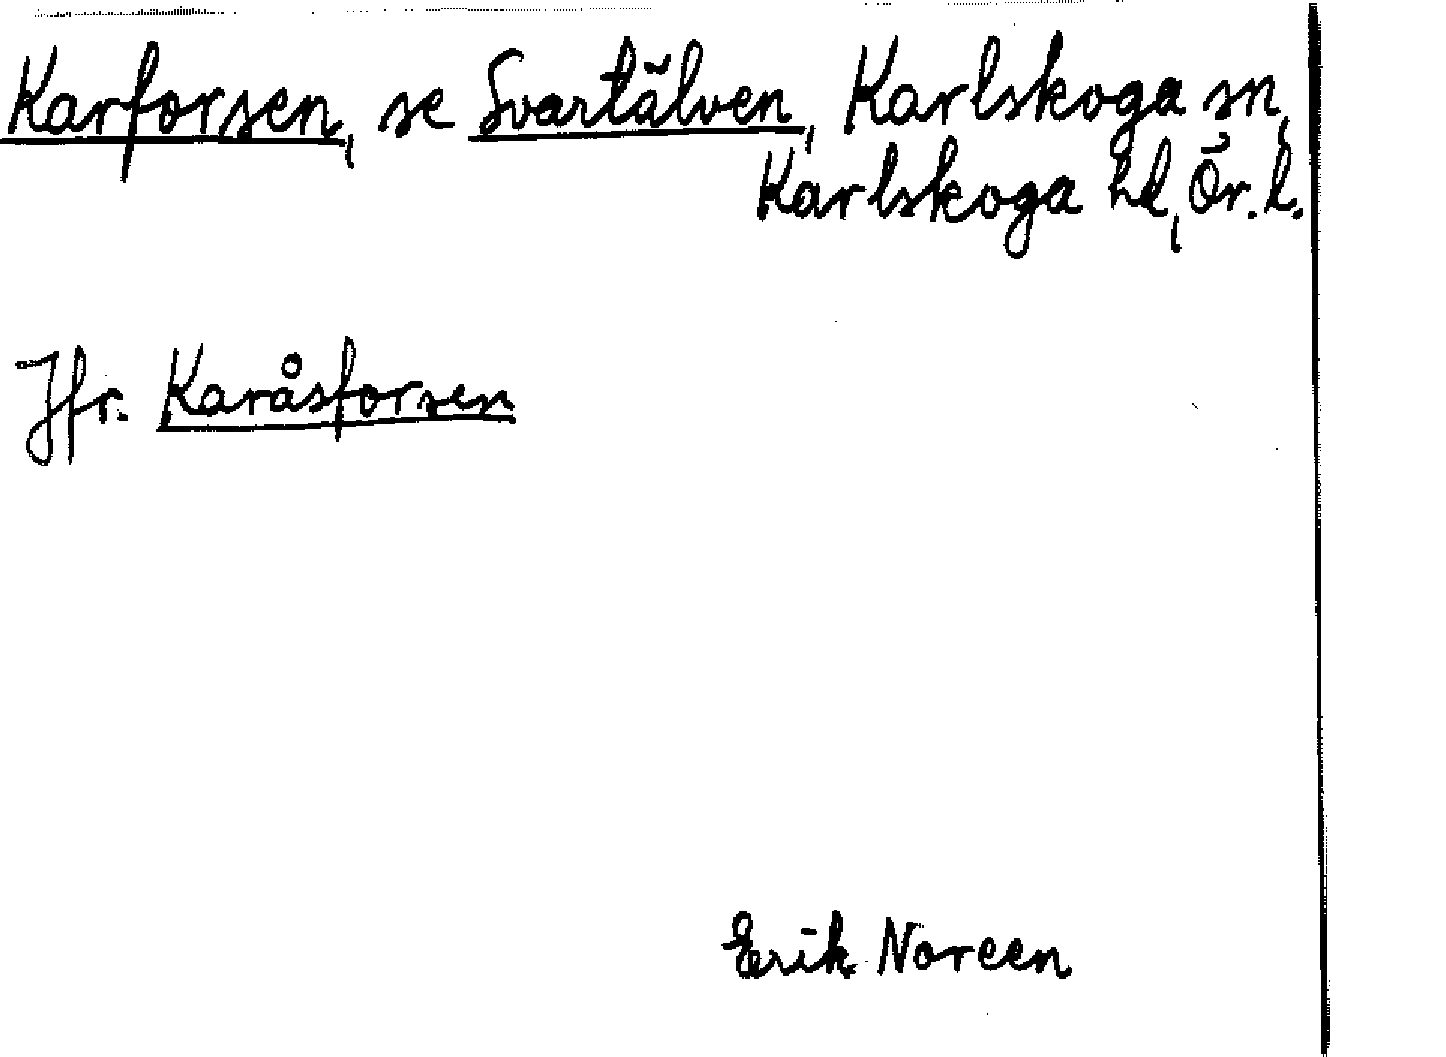 Karforsen, se Svartälven, Karlskoga sn,
Karlskoga hd, Ör. l.
Jfr. Karåsforsen
Erik Noreen